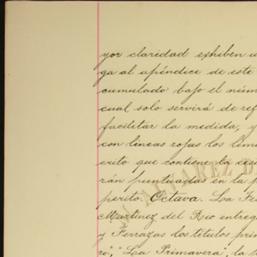 yor claridad exhiben u
ga al apéndice de este
cumulado bajo el núm
cual solo servirá de ref
facilitar la medida, y
con lineas rojas los lím
que contiene la
rán puntuadas en la p
perito. Octava. Los
Martinez del Rio entreg
y Terrazas los titulos prim
"La Primavera", la